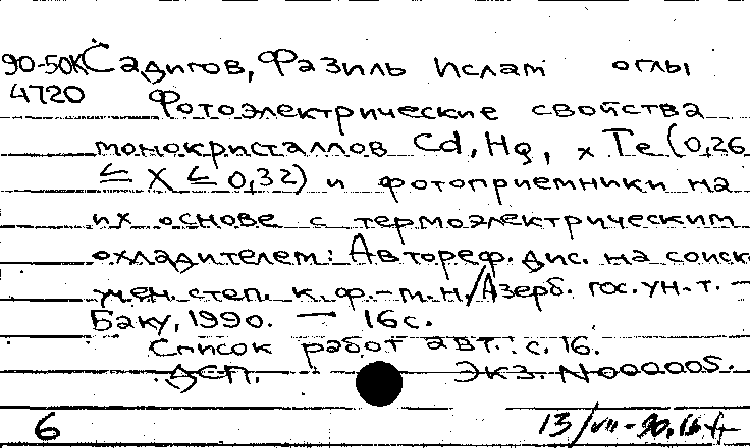 90-50К Садигов, Фазиль Ислам оглы
4720 Фотоэлектрические свойства
монокристаллов Cd, Hg, x Te (0,26
≤ X ≤ 0,32) и фотоприемники на
их основе с термоэлектрическим
охладителем: Автореф. дис. на соиск
учен. степ. к. ф.-м.н./Азерб. гос. ун.т. —
Баку, 1990. — 16 с.
Список работ авт.: с. 16.
ДСП. Экз. N000005.
6 13/VII-90.